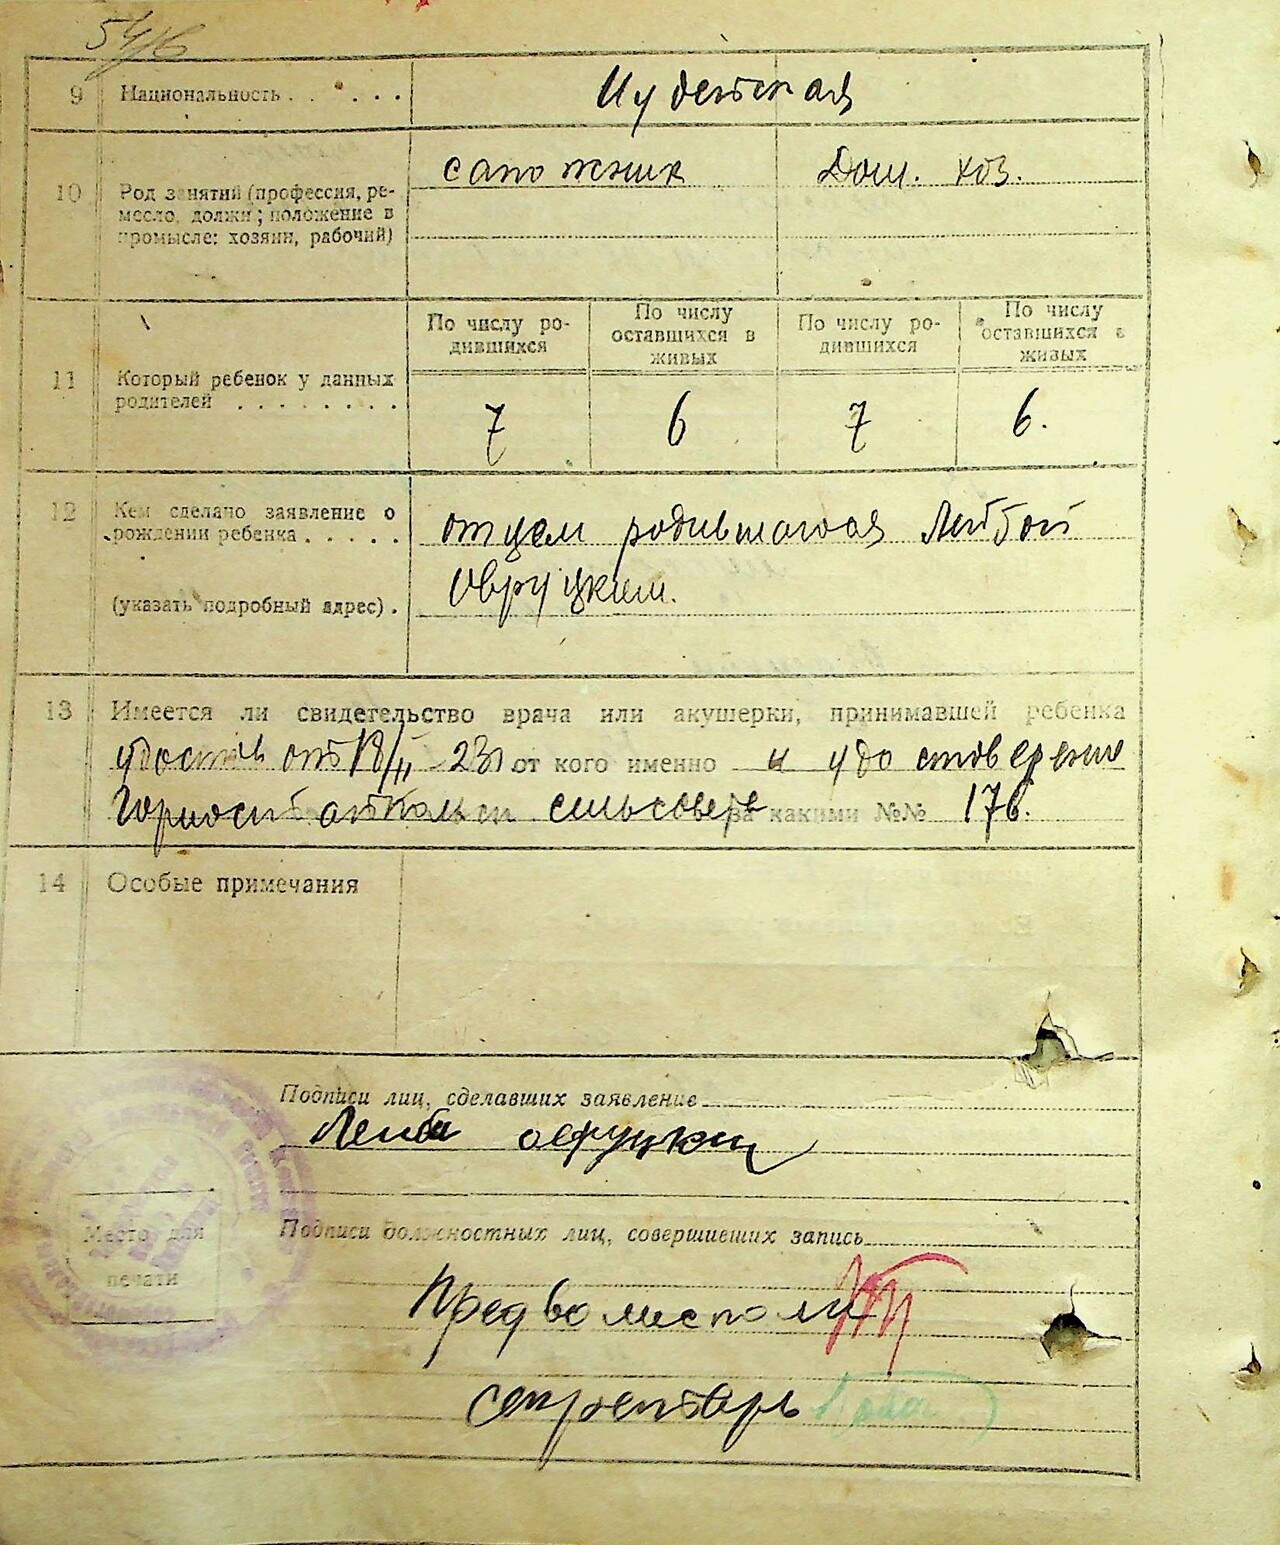 54/6
9 Национальность . . . . . . Иудейская
10 Род занятий (профессия, ре-
месло, должн; положение в
промысле: хозяин, рабочий)
сапожник Дом. хоз.
11 Который ребенок у данных
родителей . . . . . . . .
По числу ро-
дившихся
По числу
оставшихся в
живых
По числу ро-
дившихся
По числу
оставшихся в
живых
7 6 7 6.
12 Кем сделано заявление о
рождении ребенка . . . . .
(указать подробный адрес) .
отцем родившагося Лейбой
Овруцким.
13 Имеется ли свидетельство врача или акушерки, принимавшей ребенка
удостов от 18/II-23 от кого именно и удостоверение
сельсовета за какими №№ 176.
14 Особые примечания
Подписи лиц, сделавших заявление
Лейба овруцкий
Место для
печати
Подписи должностных лиц, совершивших запись
Предволисполк
секретарь